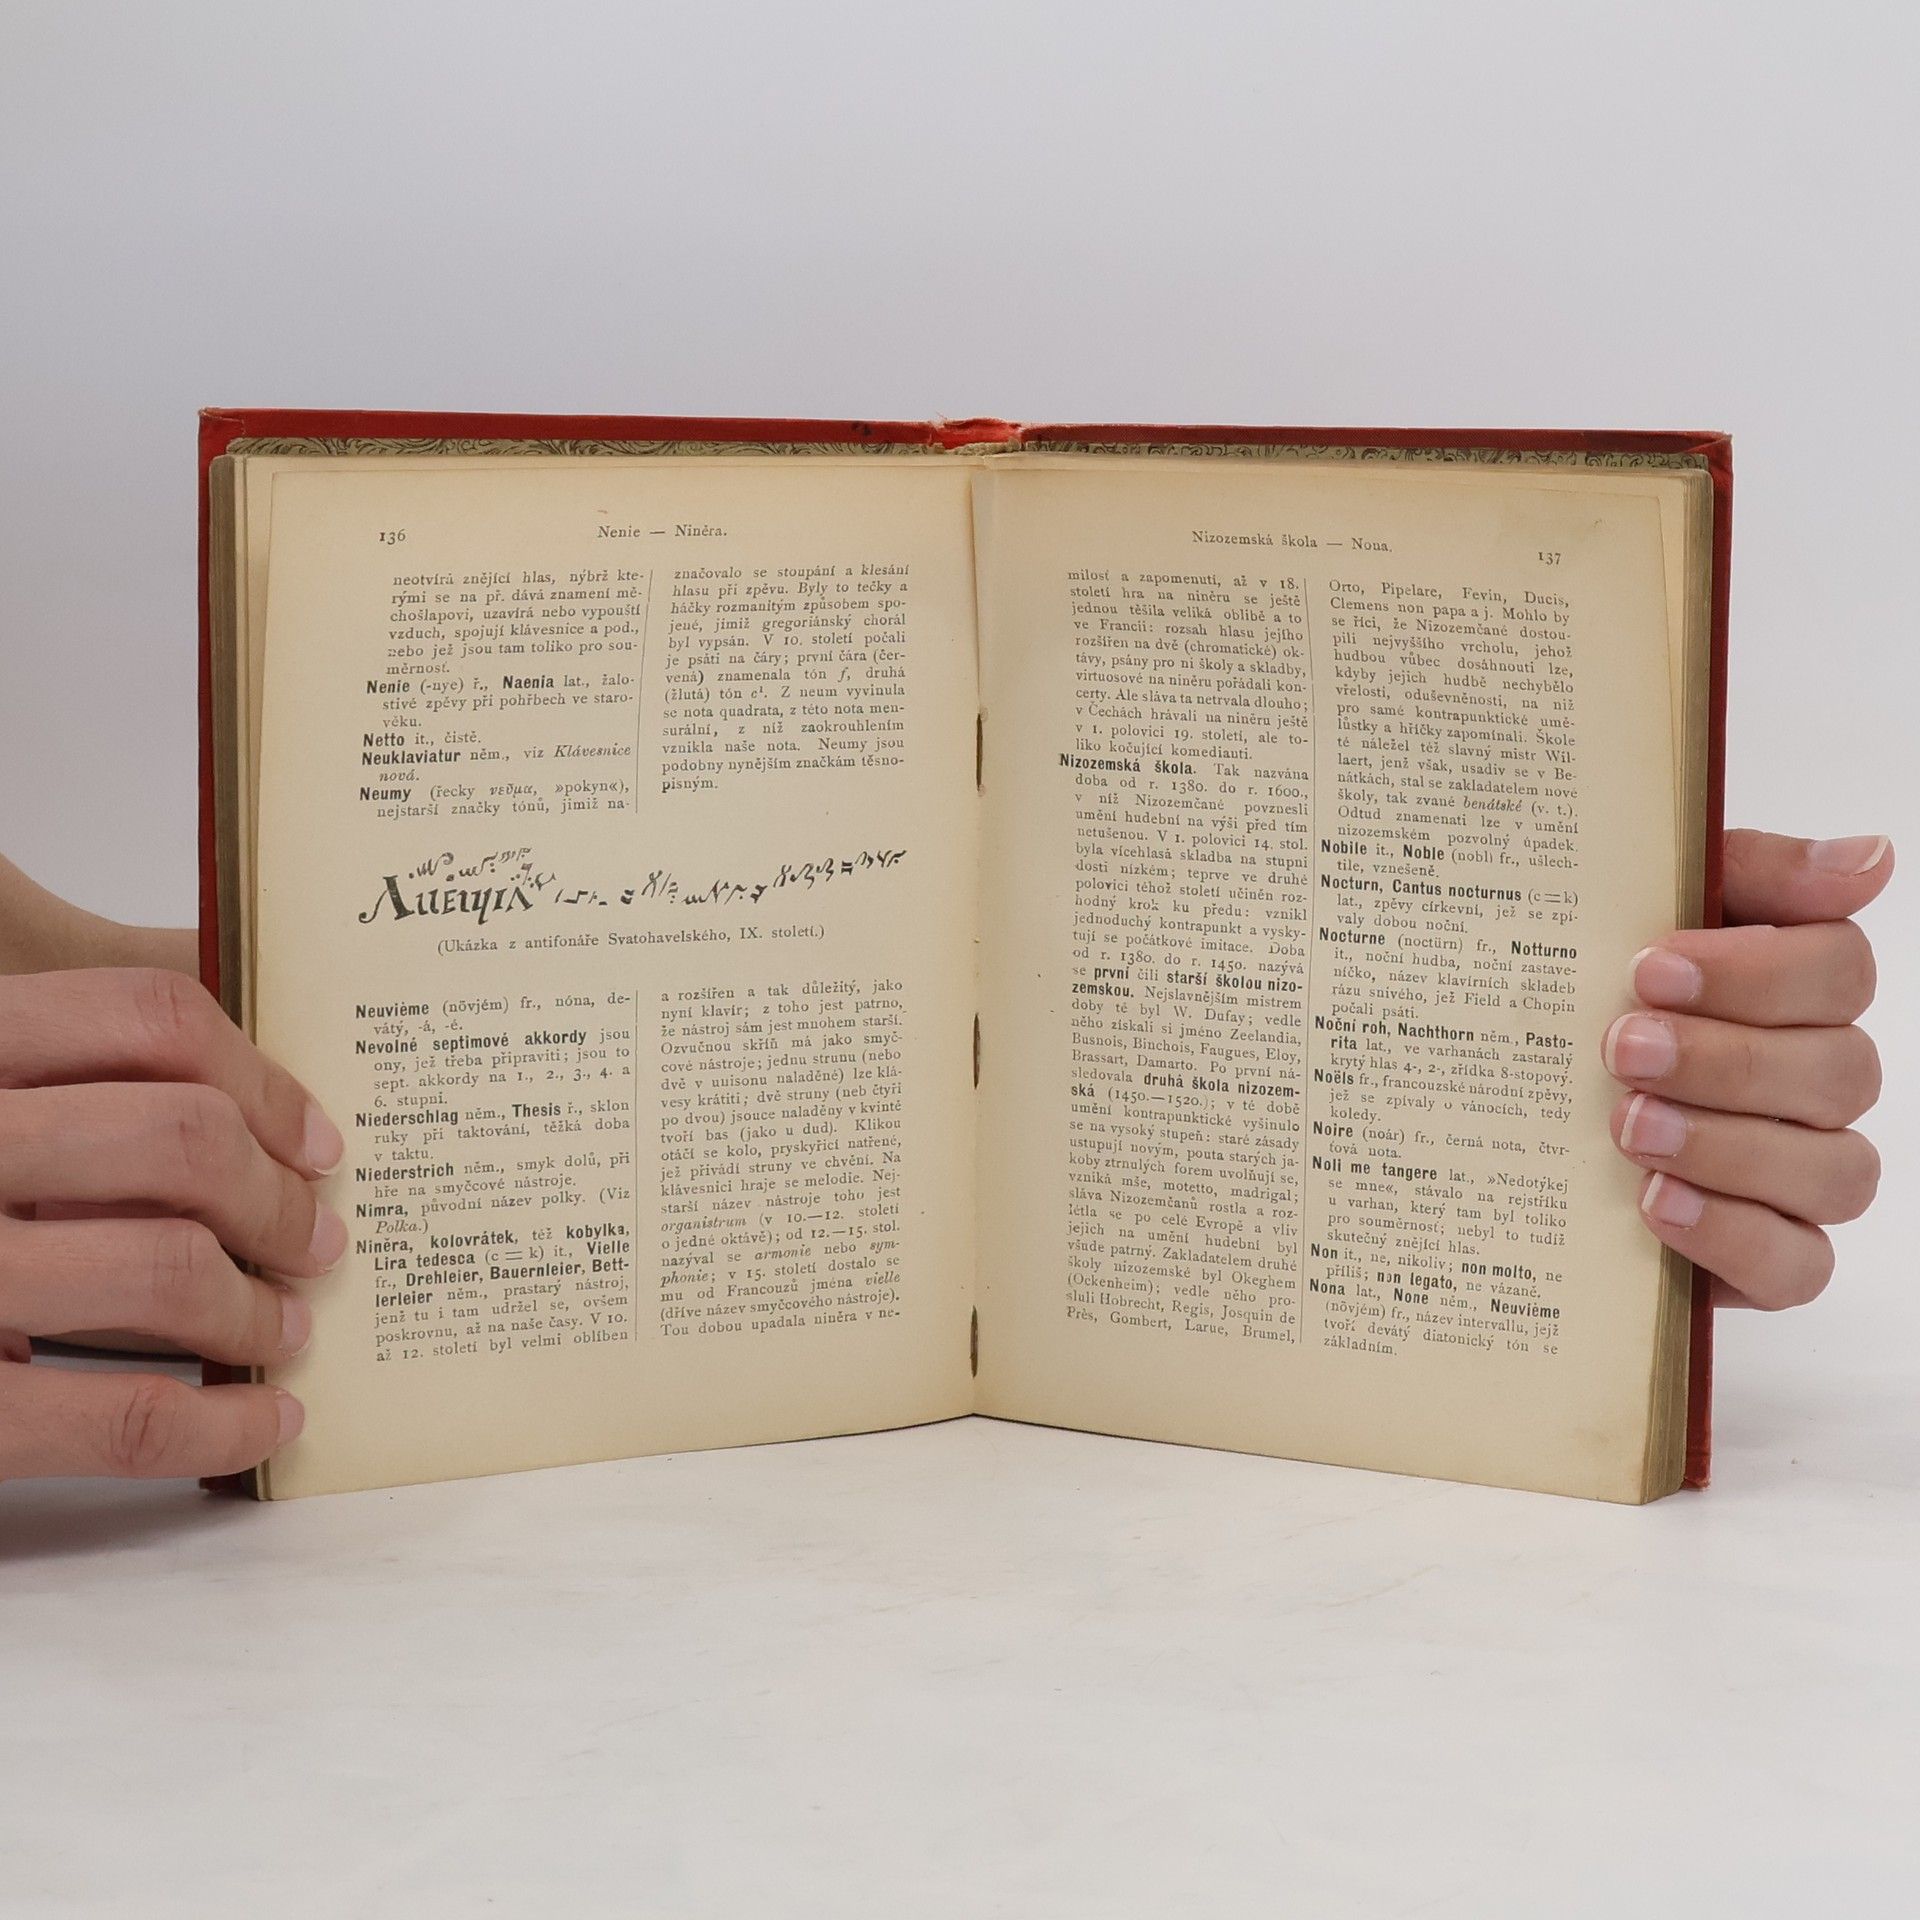 136
Nenie — Niněra.
neotvírá znějící hlas, nýbrž kte-
rými se na př. dává znamení mě-
chošlapovi, uzavírá nebo vypouští
vzduch, spojují klávesnice a pod.,
nebo jež jsou tam toliko pro sou-
měrnosť.
Nenie (-nye) ř., Naenia lat., žalo-
stivé zpěvy při pohřbech ve staro-
věku.
Netto it., čistě.
Neuklaviatur něm., viz Klávesnice
nová.
Neumy (řecky νεῦμα, »pokyn«),
nejstarší značky tónů, jimiž na-
značovalo se stoupání a klesání
hlasu při zpěvu. Byly to tečky a
háčky rozmanitým způsobem spo-
jené, jimiž gregoriánský chorál
byl vypsán. V 10. století počali
je psáti na čáry; první čára (čer-
vená) znamenala tón f, druhá
(žlutá) tón c¹. Z neum vyvinula
se nota quadrata, z této nota men-
surální, z níž zaokrouhlením
vznikla naše nota. Neumy jsou
podobny nynějším značkám těsno-
pisným.
(Ukázka z antifonáře Svatohavelského, IX. století.)
Neuvième (növjém) fr., nóna, de-
vátý, -á, -é.
Nevolné septimové akkordy jsou
ony, jež třeba připraviti; jsou to
sept. akkordy na 1., 2., 3., 4. a
6. stupni.
Niederschlag něm., Thesis ř., sklon
ruky při taktování, těžká doba
v taktu.
Niederstrich něm., smyk dolů, při
hře na smyčcové nástroje.
Nimra, původní název polky. (Viz
Polka.)
Niněra, kolovrátek, též kobylka,
Lira tedesca (c = k) it., Vielle
fr., Drehleier, Bauernleier, Bett-
lerleier něm., prastarý nástroj,
jenž tu i tam udržel se, ovšem
poskrovnu, až na naše časy. V 10.
až 12. století byl velmi oblíben
a rozšířen a tak důležitý, jako
nyní klavír; z toho jest patrno,
že nástroj sám jest mnohem starší.
Ozvučnou skříň má jako smyč-
cové nástroje; jednu strunu (nebo
dvě v unisonu naladěné) lze klá-
vesy krátiti; dvě struny (neb čtyři
po dvou) jsouce naladěny v kvintě
tvoří bas (jako u dud). Klikou
otáčí se kolo, pryskyřicí natřené,
jež přivádí struny ve chvění. Na
klávesnici hraje se melodie. Nej-
starší název nástroje toho jest
organistrum (v 10.—12. století
o jedné oktávě); od 12.—15. stol.
nazýval se armonie nebo sym-
phonie; v 15. století dostalo se
mu od Francouzů jména vielle
(dříve název smyčcového nástroje).
Tou dobou upadala niněra v ne-
Nizozemská škola — Nona.
137
milosť a zapomenutí, až v 18.
století hra na niněru se ještě
jednou těšila veliké oblibě a to
ve Francii: rozsah hlasu jejího
rozšířen na dvě (chromatické) ok-
távy, psány pro ni školy a skladby,
virtuosové na niněru pořádali kon-
certy. Ale sláva ta netrvala dlouho;
v Čechách hrávali na niněru ještě
v 1. polovici 19. století, ale to-
liko kočující komedianti.
Nizozemská škola. Tak nazvána
doba od r. 1380. do r. 1600.,
v níž Nizozemčané povznesli
umění hudební na výši před tím
netušenou. V 1. polovici 14. stol.
byla vícehlasá skladba na stupni
dosti nízkém; teprve ve druhé
polovici téhož století učiněn roz-
hodný krok ku předu: vznikl
jednoduchý kontrapunkt a vysky-
tují se počátkové imitace. Doba
od r. 1380. do r. 1450. nazývá
se první čili starší školou nizo-
zemskou. Nejslavnějším mistrem
doby té byl W. Dufay; vedle
něho získali si jméno Zeelandia,
Busnois, Binchois, Faugues, Eloy,
Brassart, Damarto. Po první ná-
sledovala druhá škola nizozem-
ská (1450.—1520.); v té době
umění kontrapunktické vyšinulo
se na vysoký stupeň: staré zásady
ustupují novým, pouta starých ja-
koby ztrnulých forem uvolňují se,
vzniká mše, motetto, madrigal;
sláva Nizozemčanů rostla a roz-
létla se po celé Evropě a vliv
jejich na umění hudební byl
všude patrný. Zakladatelem druhé
školy nizozemské byl Okeghem
(Ockenheim); vedle něho pro-
sluli Hobrecht, Regis, Josquin de
Près, Gombert, Larue, Brumel,
Orto, Pipelare, Fevin, Ducis,
Clemens non papa a j. Mohlo by
se říci, že Nizozemčané dostou-
pili nejvyššího vrcholu, jehož
hudbou vůbec dosáhnouti lze,
kdyby jejich hudbě nechybělo
vřelosti, oduševněnosti, na niž
pro samé kontrapunktické umě-
lůstky a hříčky zapomínali. Škole
té náležel též slavný mistr Wil-
laert, jenž však, usadiv se v Be-
nátkách, stal se zakladatelem nové
školy, tak zvané benátské (v. t.).
Odtud znamenati lze v umění
nizozemském pozvolný úpadek.
Nobile it., Noble (nobl) fr., ušlech-
tile, vznešeně.
Nocturn, Cantus nocturnus (c = k)
lat., zpěvy církevní, jež se zpí-
valy dobou noční.
Nocturne (noctürn) fr., Notturno
it., noční hudba, noční zastave-
níčko, název klavírních skladeb
rázu snivého, jež Field a Chopin
počali psáti.
Noční roh, Nachthorn něm., Pasto-
rita lat., ve varhanách zastaralý
krytý hlas 4-, 2-, zřídka 8-stopový.
Noëls fr., francouzské národní zpěvy,
jež se zpívaly o vánocích, tedy
koledy.
Noire (noár) fr., černá nota, čtvr-
ťová nota.
Noli me tangere lat., »Nedotýkej
se mne«, stávalo na rejstříku
u varhan, který tam byl toliko
pro souměrnosť; nebyl to tudíž
skutečný znějící hlas.
Non it., ne, nikoliv; non molto, ne
příliš; non legato, ne vázaně.
Nona lat., None něm., Neuvième
(növjém) fr., název intervallu, jejž
tvoří devátý diatonický tón se
základním.